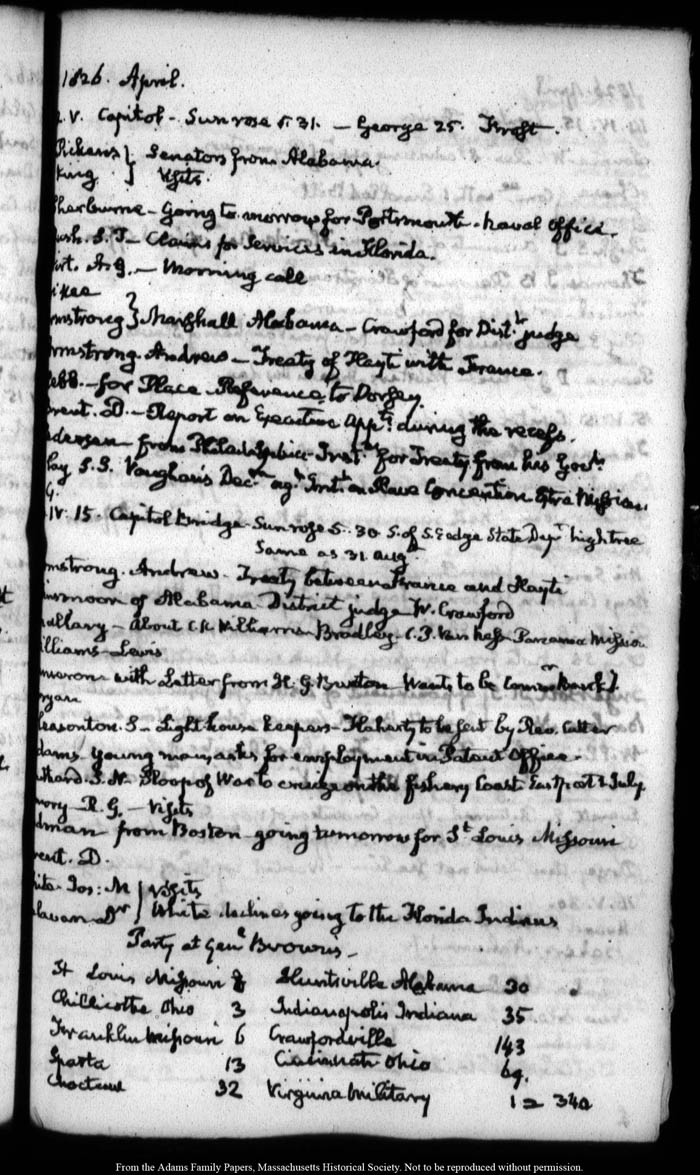 1826. April.
V. Capitol - Sun rose 5.31. - George 25. Frost.
Pickens } Senators from Alabama.
King } Visits.
Sherburne - Going to morrow for Portsmouth. Naval Office.
ush. S.T - Claims for Services in Florida.
A.G. - Morning call
mstrong } Marshall Alabama - Crawford for Distt. judge
rmstrong. Andrew - Treaty of Hayti with France.
ebb. - for Place - Reference to Dorsey
rent. D. - Report on Executive Appts. during the recess.
from Philadelphia Instns for Treaty from his Govt.
lay S.S. Vaughan's Decn agt Slave Convention Extra Mission
G.
IV. 15. Capitol Bridge. Sun rose 5.30 S. of S. Edge State Dept high tree
Same as 31 Augt
mstrong. Andrew - Treaty between France and Hayti
of Alabama District judge W. Crawford
allary - about C.K. Williams Bradley. C.P. Van Ness Panama Mission
illiams - Lewis
meron with Letter from H. G. Burton Wants to be
ryan
leasonton. S - Light house keepers - Flaherty to be sent by Rev. Cutter
dams. young man, asks for employment in Patent Office.
uthard. S.N. Sloop of War to cruize on the fishery Coast Eastport 1 July
ory - R. G. - Visits
dman from Boston going tomorrow for St Louis Missouri
rent. D.
ite Jos: M } Visits
Dr } White declines going to the Florida Indians
Party at Genl Brown's -
St Louis Missouri 8 Huntsville Alabama 30
Chillicothe Ohio 3 Indianapolis Indiana 35
Franklin Missouri 6 Crawfordville 143
Sparta 13 Cincinnati Ohio 69.
Choctaw 32 Virginia Military 1 = 340
From the Adams Family Papers, Massachusetts Historical Society. Not to be reproduced without permission.